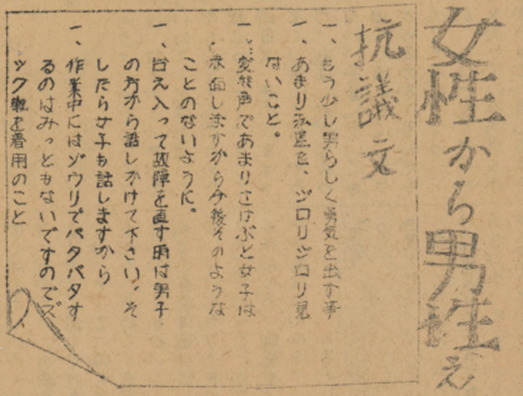 女性から男性え
抗議文
一、もう少し男らしく勇気を出す事
一、あまり私達を、ジロリジロリ見
ないこと。
一、変な声であまりさけぶと女子は
しますから今後そのような
ことのないように。
一、台え入って故障を直す時は男子
の方から話しかけて下さい。そ
したら女子も話しますから
一、作業中にはゾウリでパタパタす
るのはみっともないですのでズ
ック靴を着用のこと